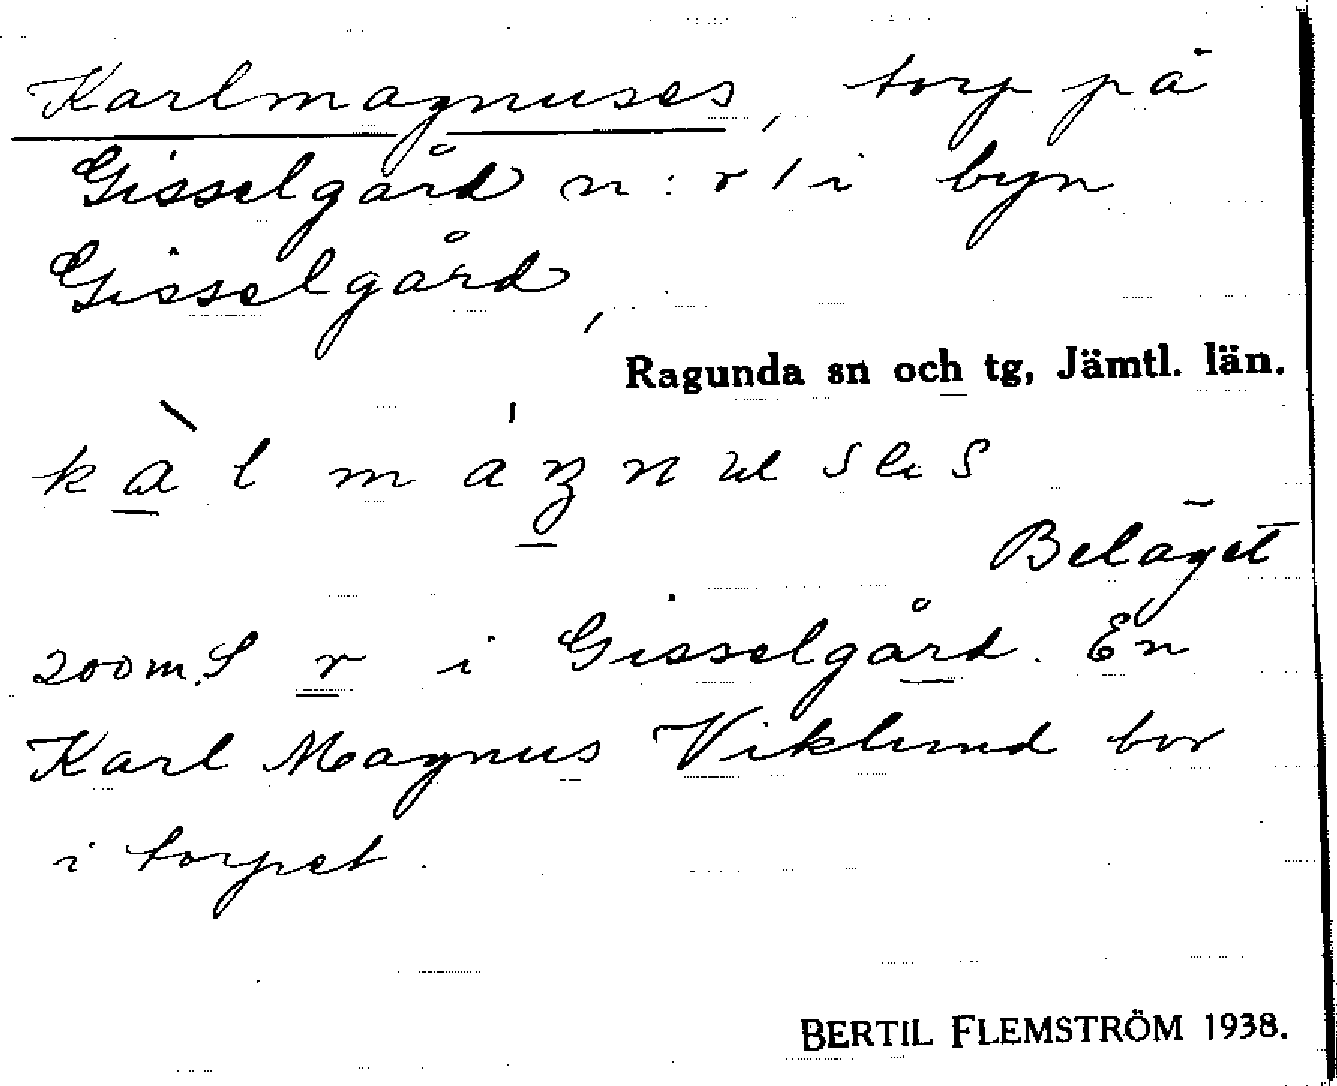 Karlmagnuses, torp på
Gisselgård n:r 1 i byn
Gisselgård,
Ragunda sn och tg, Jämtl. län.
Beläget
200 m. S r i Gisselgård. En
Karl Magnus Viklund bor
i torpet.
BERTIL FLEMSTRÖM 1938.